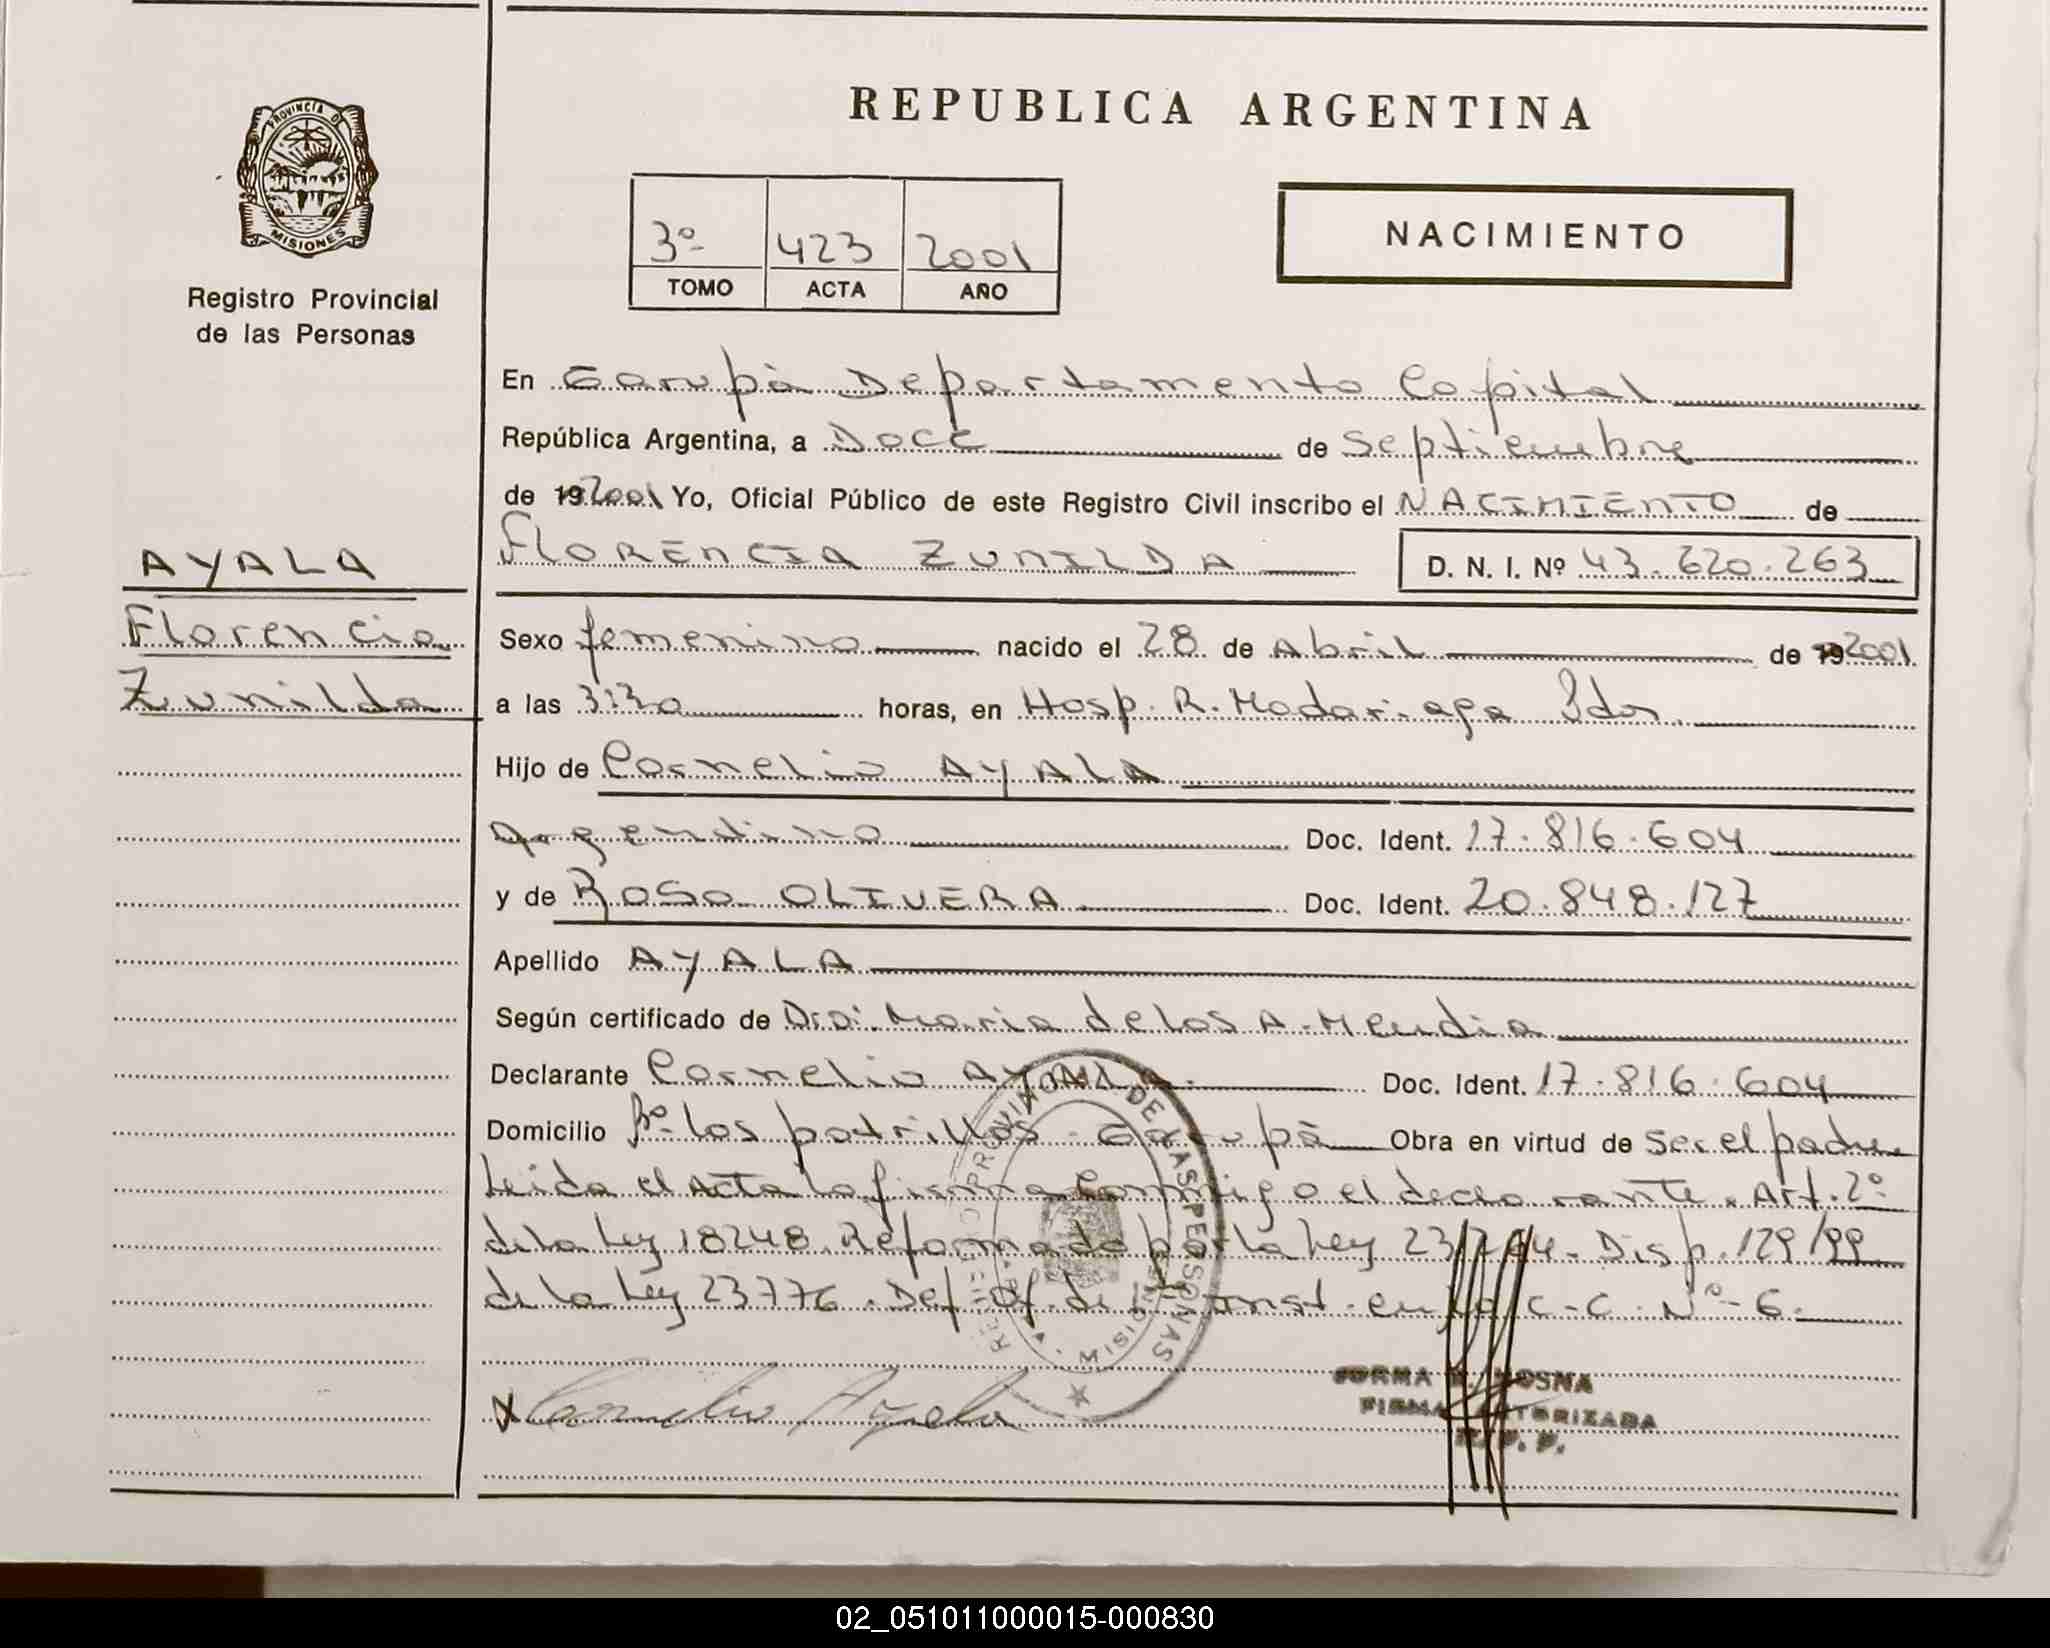 REPUBLICA ARGENTINA
PROVINCIA DE MISIONES
Registro Provincial
de las Personas
3º 423 2001
TOMO ACTA AÑO
NACIMIENTO
En Garupà Departamento Capital
República Argentina, a Doce de Septiembre
de 19 2001 Yo, Oficial Público de este Registro Civil inscribo el NACIMIENTO de
FLORENCIA ZUNILDA D. N. I. Nº 43.620.263
AYALA
Florencia
Zunilda
Sexo femenino nacido el 28 de Abril de 19 2001
a las 3:30 horas, en Hosp. R. Madariaga Pdas.
Hijo de Cornelio AYALA
Argentino Doc. Ident. 17.816.604
y de Rosa OLIVERA Doc. Ident. 20.848.127
Apellido AYALA
Según certificado de Dra: Maria de los A. Mendia
Declarante Cornelio AYALA. Doc. Ident. 17.816.604
Domicilio Bº los potrillos - Garupà Obra en virtud de Ser el padre
Leida el Acta la firma Conmigo el declarante. Art. 2º
de la Ley 18248. Reformado por la Ley 23264. Disp. 129/99
de la Ley 23776. Def. Of. de Inst. en lo C-C. Nº 6.
REGISTRO PROVINCIAL DE LAS PERSONAS
MISIONES
X Cornelio Ayala
NOSNA
FIRMA AUTORIZADA
R. P. P.
02_051011000015-000830